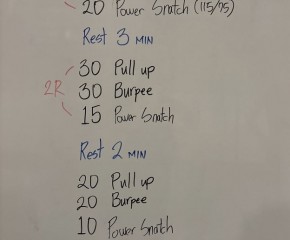 20 Power Snatch (115/75)
Rest 3 MIN
30 Pull up
2R 30 Burpee
15 Power Snatch
Rest 2 MIN
20 Pull up
20 Burpee
10 Power Snatch